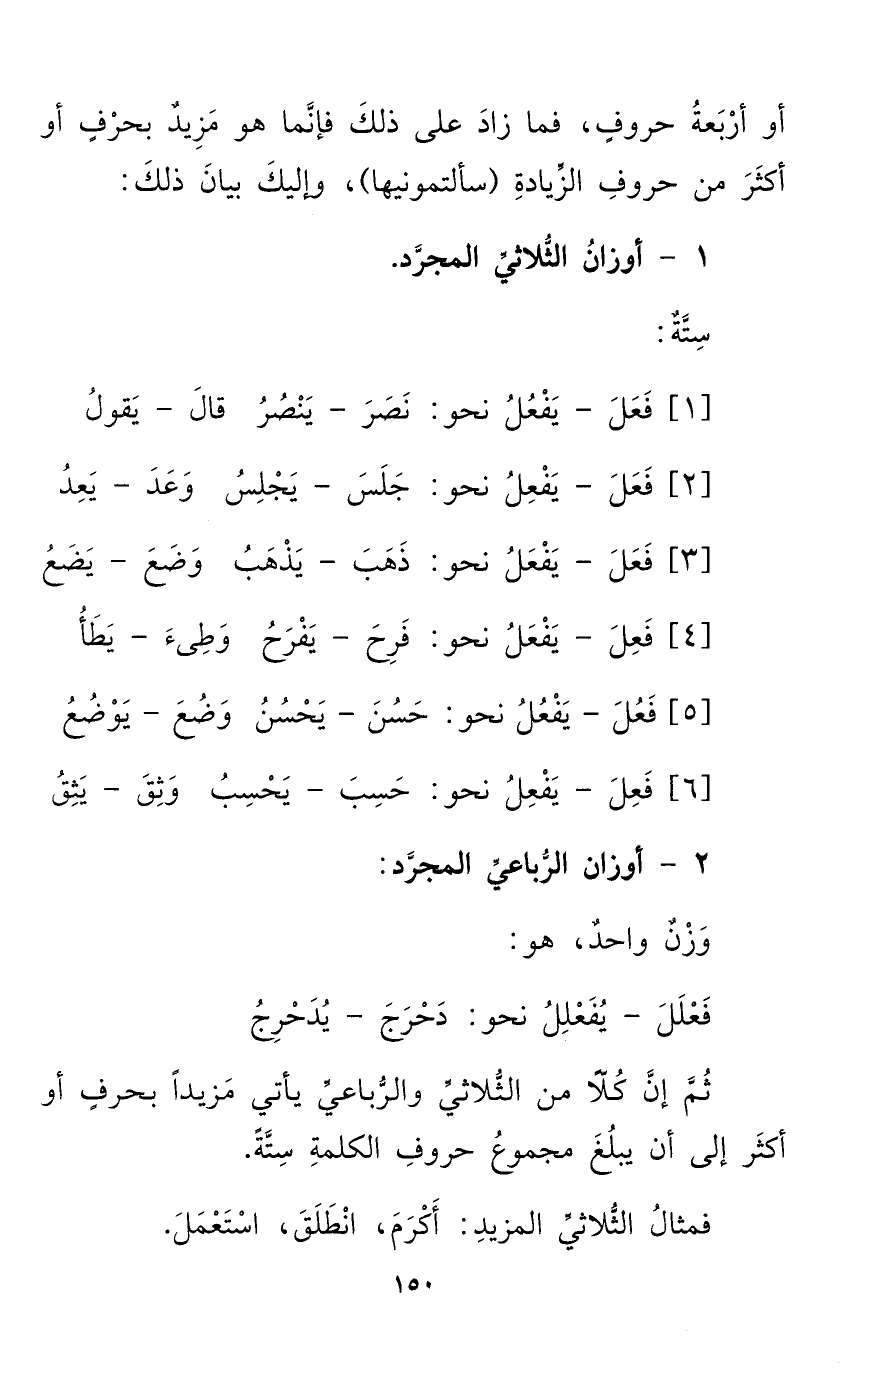 أو أرْبَعةُ حروفٍ، فما زادَ على ذلكَ فإنَّما هو مَزِيدٌ بحرْفٍ أو
أكثَرَ من حروفِ الزِّيادةِ (سألتمونيها)، وإليكَ بيانَ ذلكَ:
١ - أوزانُ الثُّلاثيِّ المجرَّد.
سِتَّةٌ:
[١] فَعَلَ - يَفْعُلُ نحو: نَصَرَ - يَنْصُرُ قالَ - يَقولُ
[٢] فَعَلَ - يَفْعِلُ نحو: جَلَسَ - يَجْلِسُ وَعَدَ - يَعِدُ
[٣] فَعَلَ - يَفْعَلُ نحو: ذَهَبَ - يَذْهَبُ وَضَعَ - يَضَعُ
[٤] فَعِلَ - يَفْعَلُ نحو: فَرِحَ - يَفْرَحُ وَطِىءَ - يَطَأُ
[٥] فَعُلَ - يَفْعُلُ نحو: حَسُنَ - يَحْسُنُ وَضُعَ - يَوْضُعُ
[٦] فَعِلَ - يَفْعِلُ نحو: حَسِبَ - يَحْسِبُ وَثِقَ - يَثِقُ
٢ - أوزان الرُّباعيِّ المجرَّد:
وَزْنٌ واحدٌ، هو:
فَعْلَلَ - يُفَعْلِلُ نحو: دَحْرَجَ - يُدَحْرِجُ
ثُمَّ إنَّ كُلّا من الثُّلاثيِّ والرُّباعيِّ يأتي مَزيداً بحرفٍ أو
أكثَر إلى أن يبلُغَ مجموعُ حروفِ الكلمةِ سِتَّةً.
فمثالُ الثُّلاثيِّ المزيدِ: أَكْرَمَ، انْطَلَقَ، اسْتَعْمَلَ.
١٥٠